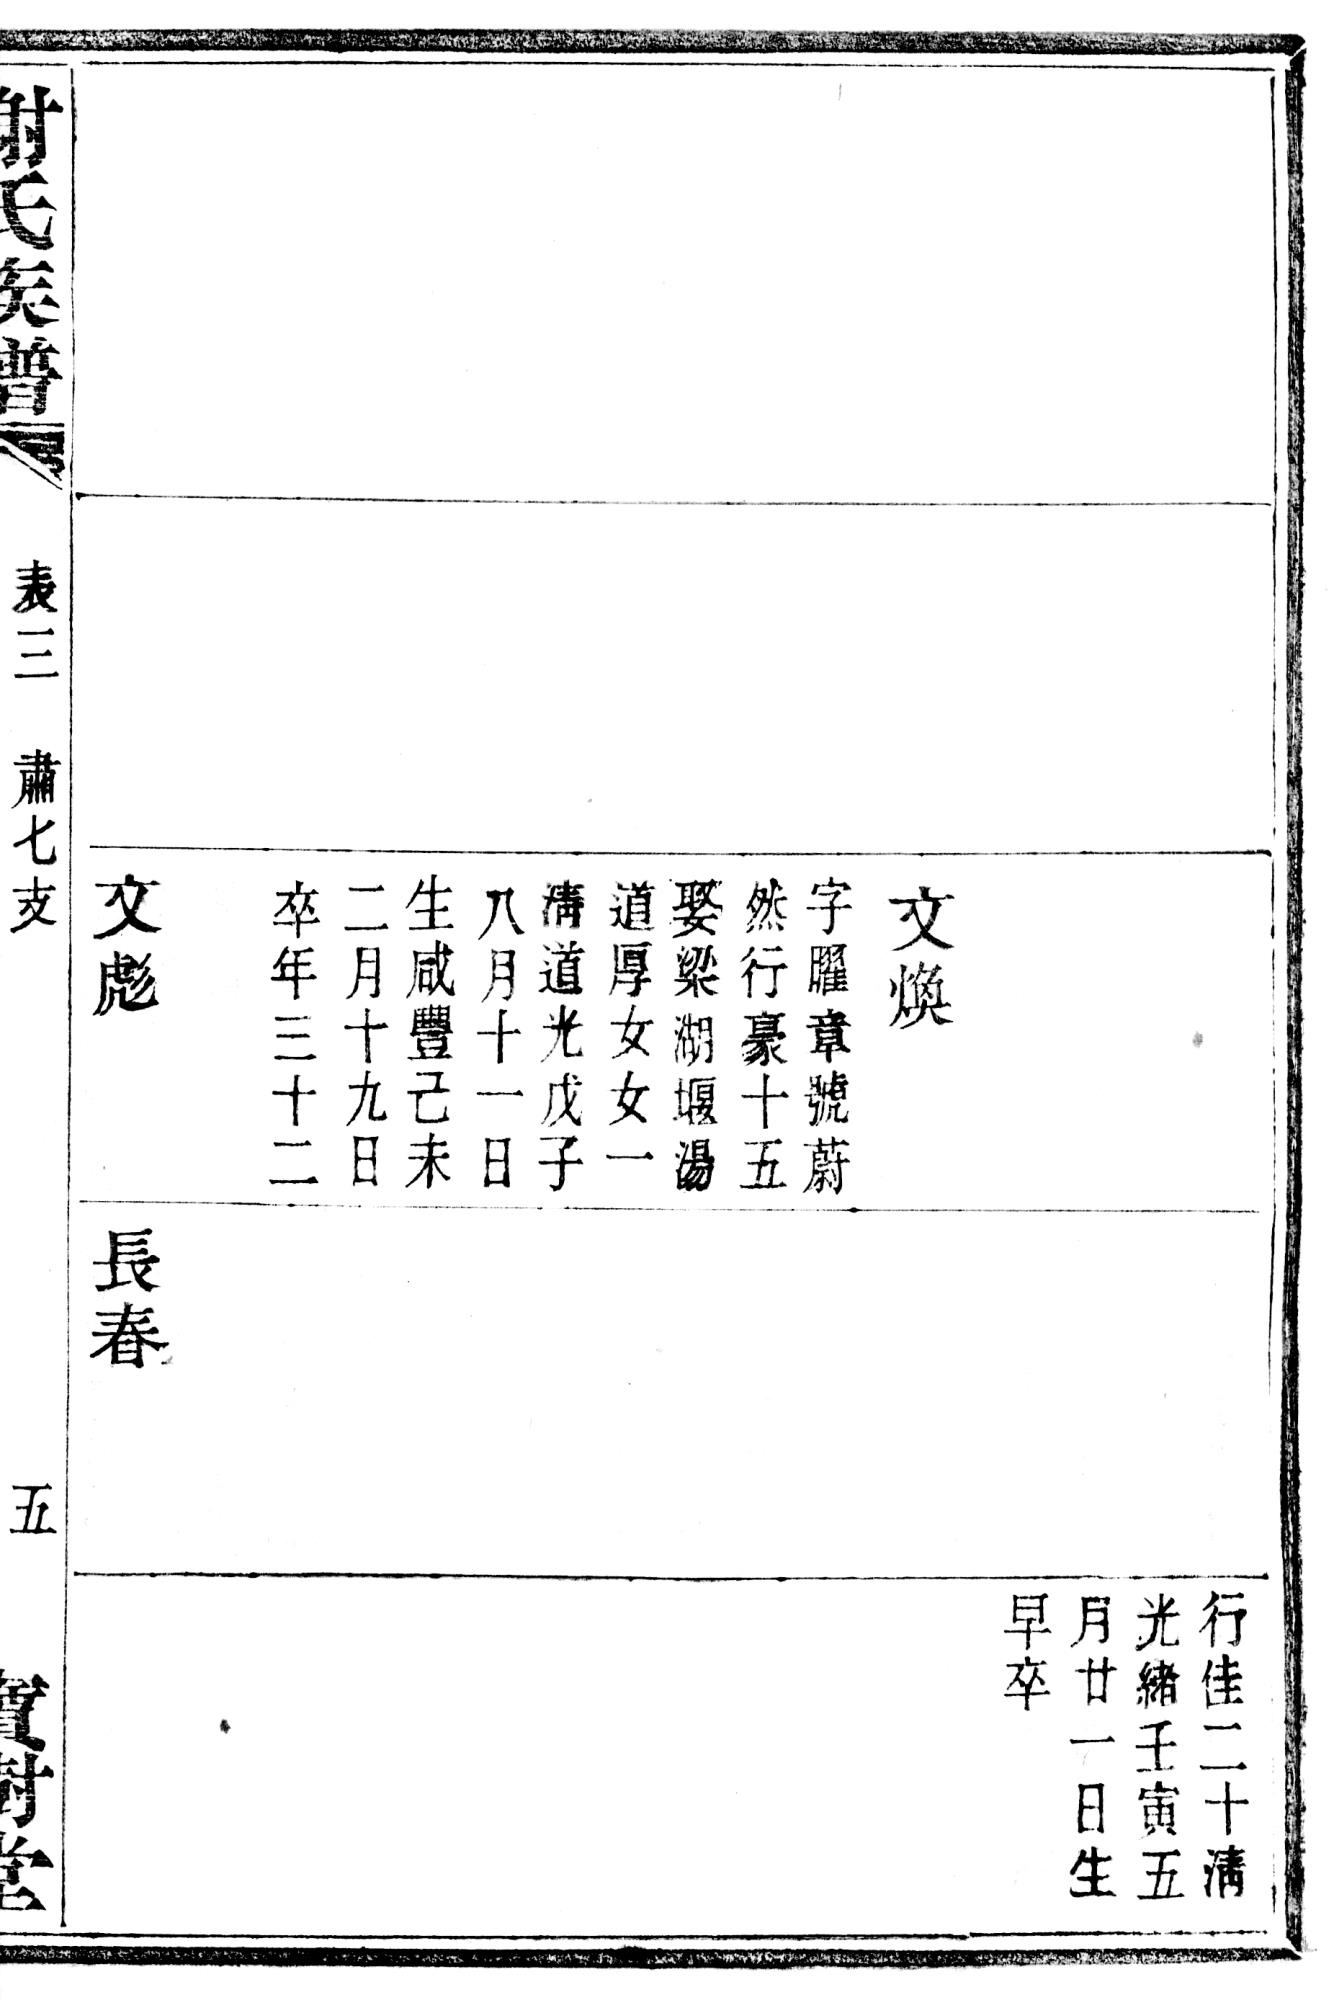 文煥
字曜章號蔚
然行豪十五
娶梁湖堰湯
道厚女女一
清道光戊子
八月十一日
生咸豐己未
二月十九日
卒年三十二
文彪
長春
行佳二十清
光緒壬寅五
月廿一日生
早卒
謝氏族譜
表三 肅七支
五
寶樹堂